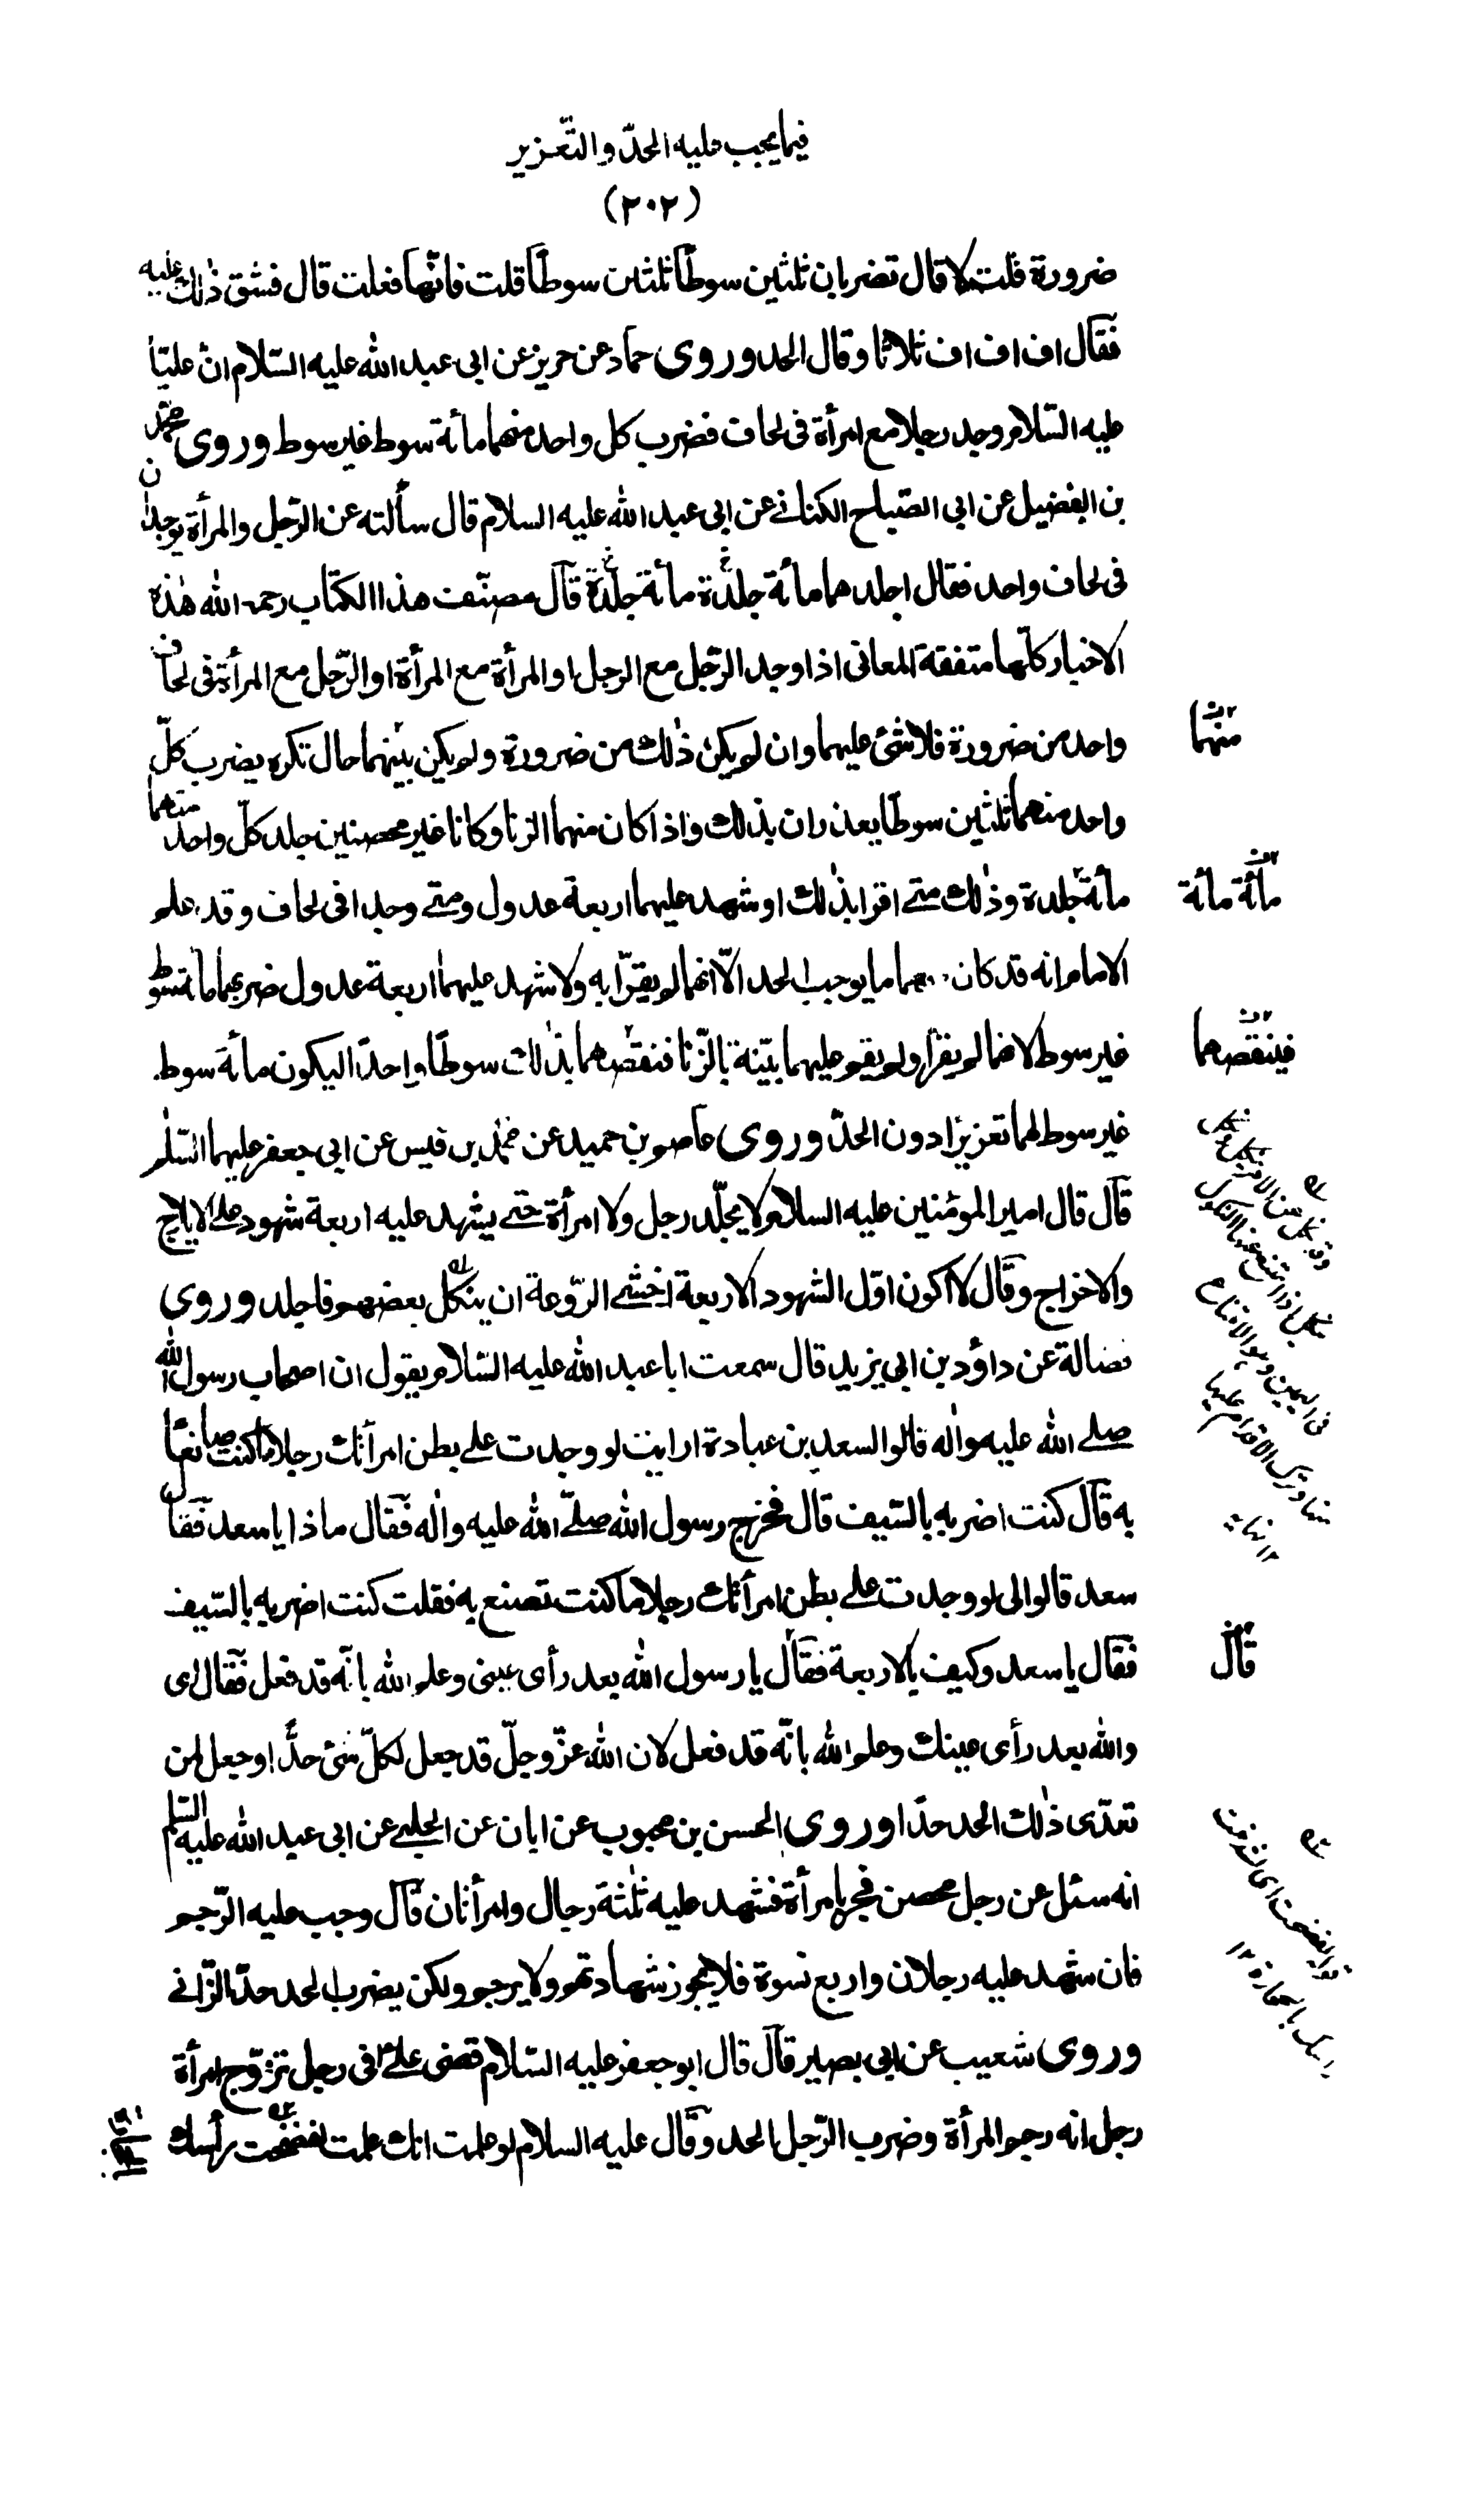 فيما يجب عليه الحدّ والتّعزير
(٢٠٢)
ضرورة قلت لا قال تضربان ثلثين سوطًا ثلثين سوطًا قلت فانّها فعلت قال فشق ذٰلك عليه
فقال اف اف اف ثلاثا وقال الحد وروى حماد عن حريز عن ابى عبد الله عليه السّلام انّ عليّاً
عليه السّلام وجد رجلا مع امرأة فى لحاف فضرب كل واحد منهما مائة سوط غير سوط وروى محمّد
بن الفضيل عن ابى الصّباح الكنانے عن ابى عبد الله عليه السلام قال سألته عن الرّجل والمرأة يوجدان
فى لحاف واحد فقال اجلدهما مائة جلدة مائة جلدة قال مصنّف هذا الكتاب رحمه الله هٰذه
الاخبار كلّها متفقة المعانى اذا وجد الرّجل مع الرجل او المرأة مع المرأة او الرّجل مع المرأة فى لحاف
واحد من ضرورة فلا شئ عليهما وان لم يكن ذٰلك من ضرورة ولم يكن بينهما حال تكره يضرب كلّ
منهما
واحد منهما ثلثين سوطًا يعذران بذلك واذا كان منهما الزنا وكانا غير محصنين جلد كلّ واحد منهما
مائة جلدة وذٰلك متے اقرا بذٰلك او شهد عليهما اربعة عدول ومتے وجدا فى لحاف وقد علم
مائة مائة
الامام انه قد كان منهما ما يوجب الحد الّا انهما لم يقرّا به ولا شهد عليهما اربعة عدول ضربهما مائة سوط
غير سوط لانهما لم يقرّا ولم يقم عليهما بيّنة بالزّنا فنقصهما بذٰلك سوطًا واحدًا ليكون مائة سوط
فينقصهما
غير سوط لهما تعزيرًا دون الحدّ وروى عاصم بن حميد عن محمّد بن قيس عن ابى جعفر عليهما السّلم
قال قال امير المؤمنين عليه السلام لا يجلّد رجل ولا امرأة حتے يشهد عليه اربعة شهود علے الايلاج
والاخراج وقال لا اكون اوّل الشهود الاربعة اخشے الرّوعة ان ينكل بعضهم فاجلد وروى
فضالة عن داؤد بن ابى يزيد قال سمعت ابا عبد الله عليه السّلام يقول ان اصحاب رسول الله
صلے الله عليه واٰله قالوا لسعد بن عبادة ارايت لو وجدت علے بطن امرأتك رجلا ما كنت صانعًا
به قال كنت اضربه بالسّيف قال فخرج رسول الله صلّے الله عليه واٰله فقال ماذا يا سعد فقال
سعد قالوا لى لو وجدت علے بطن امرأتك رجلا ما كنت تصنع به فقلت كنت اضربه بالسّيف
فقال يا سعد وكيف بالاربعة فقال يا رسول الله بعد رأى عينى وعلم الله بانّه قد فعل فقال اى
قال
والله بعد رأى عينك وعلم الله بانّه قد فعل لان الله عزّ وجلّ قد جعل لكلّ شئ حدًّا وجعل لمن
تعدّى ذٰلك الحد حدّا وروى الحسن بن محبوب عن ابان عن الحلبے عن ابى عبد الله عليه السّلم
انه سئل عن رجل محصن فجر بامرأة فشهد عليه ثلٰثة رجال وامرأتان قال وجب عليه الرّجم
فان شهد عليه رجلان واربع نسوة فلا يجوز شهادتهم ولا يرجم ولكن يضرب الحد حدّ الزّانے
وروى شعيب عن ابى بصير قال قال ابو جعفر عليه السّلام قضى علے فى رجل تزوّج امرأة
رجل انه رجم المرأة وضرب الرّجل الحد وقال عليه السلام لو علمت انك علمت لفضخت رأسك